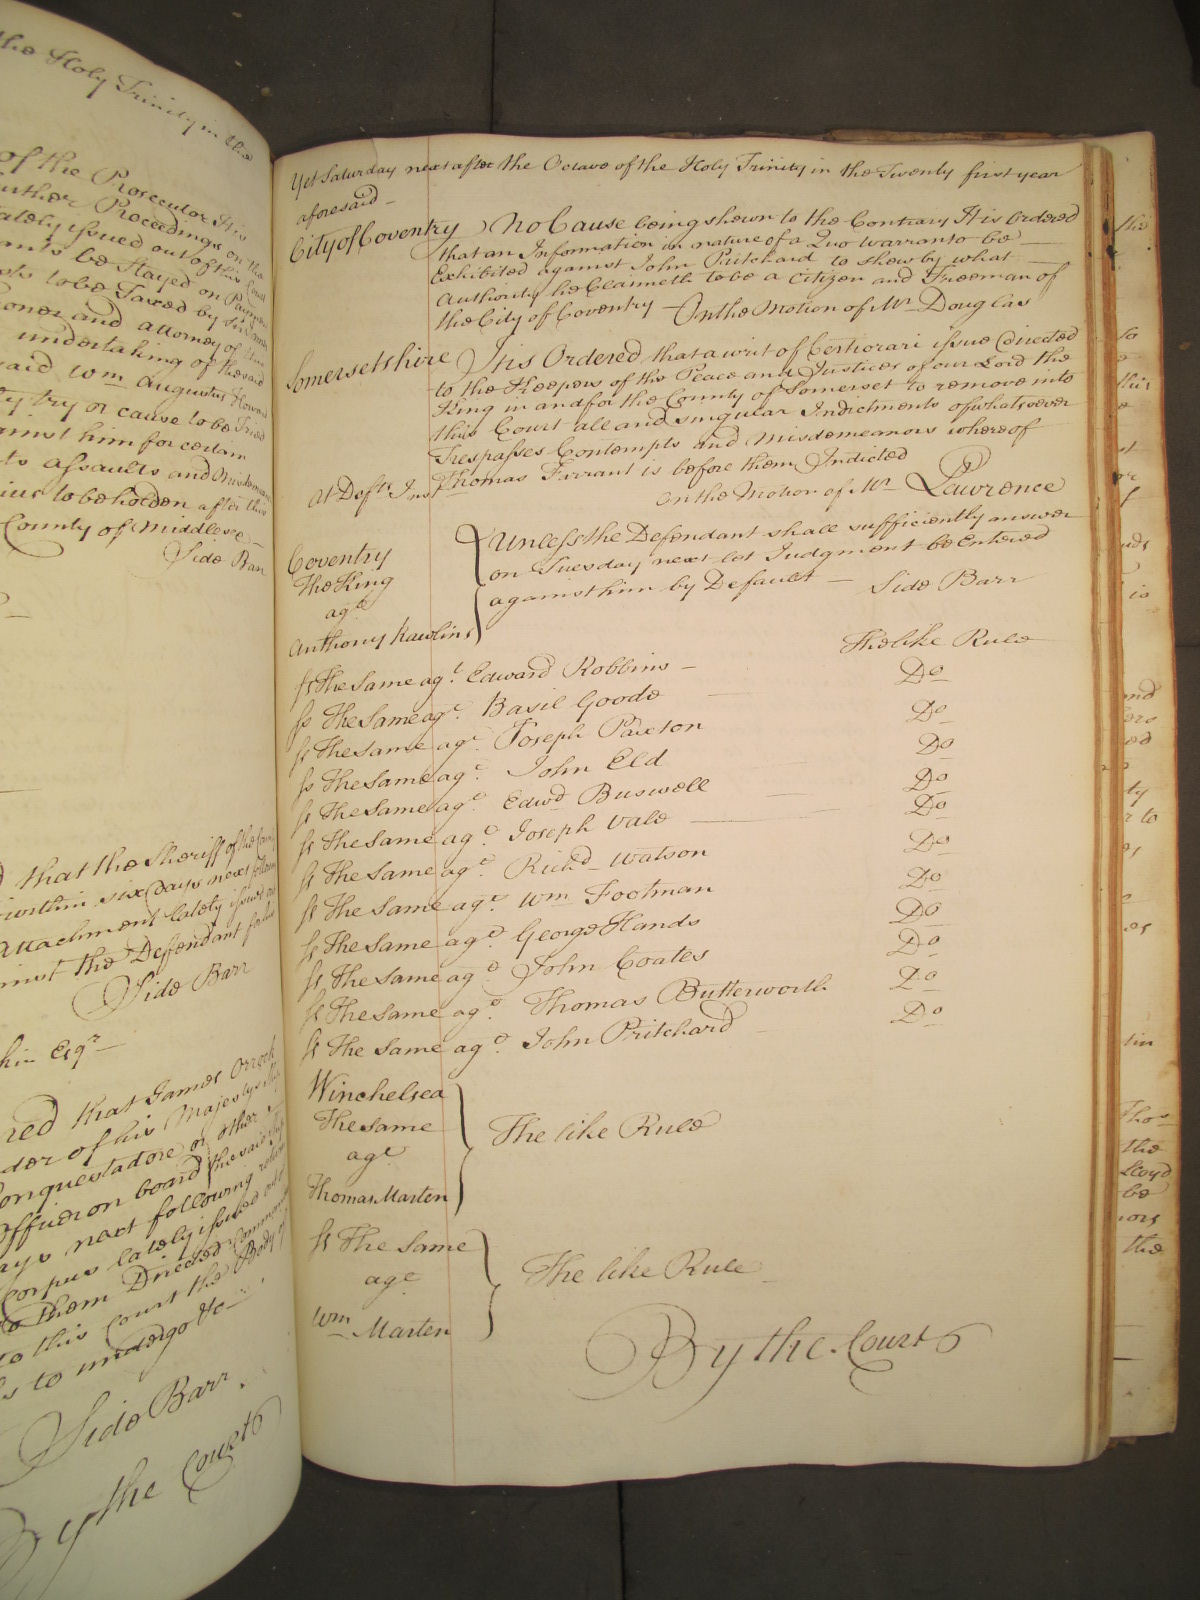 the Holy Trinity in the
of the Prosecutor It is
further Proceedings on the
lately issued out of this Court
be Stayed on Paym
to be Taxed by
Coroner and Attorney of this
undertaking of the said
said Wm Augustus Howard
try or cause to be Tried
against him for certain
assaults and Misdemeanors
to be holden after this
County of Middlesex
Side Bar
that the Sheriff of the County
within six Days next following
Attachment lately issued out
against the Defendant
Side Barr
Esqr
red that James Orrock
der of his Majestys Ship
Conquestadore or other
Officer on board the said Ship
days next following return
Corpus lately issued out
to them Directed Commanding
to this Court the Body of
to undergo &c
Side Barr.
By the Court
Yet Saturday next after the Octave of the Holy Trinity in the Twenty first year
aforesaid
City of Coventry No Cause being shewn to the Contrary It is Ordered
that an Information in nature of a Quo warranto be
Exhibited against John Pritchard to shew by what
Authority he Claimeth to be a Citizen and Freeman of
the City of Coventry — On the Motion of Mr Douglas
Somersetshire It is Ordered that a writ of Certiorari issue directed
to the Keepers of the Peace and Justices of our Lord the
King in and for the County of Somerset to remove into
this Court all and singular Indictments of whatsoever
Trespasses Contempts and Misdemeanors whereof
At Defts Inst Thomas Farrant is before them Indicted
On the Motion of Mr Lawrence
Coventry
The King
agt
Anthony Rawlins
Unless the Defendant shall sufficiently answer
on Tuesday next let Judgment be Entered
against him by Default — Side Barr
ss The Same agt Edward Robbins — The like Rule
ss The Same agt Basil Goode Do
ss The Same agt Joseph Paxton Do
ss The Same agt John Eld Do
ss The Same agt Edwd Buswell Do
ss The Same agt Joseph Vale Do
ss The Same agt Richd Watson Do
ss The Same agt Wm Footman Do
ss The Same agt George Hands Do
ss The Same agt John Coates Do
ss The Same agt Thomas Butterworth Do
ss The Same agt John Pritchard Do
Winchelsea
The same
agt
Thomas Marten
The like Rule
ss The Same
agt
Wm Marten
The like Rule
By the Court